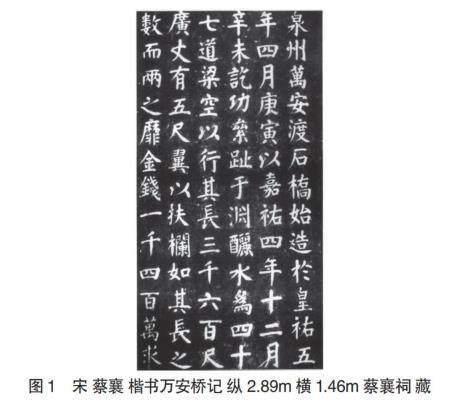 泉州萬安渡石橋始造於皇祐五
年四月庚寅以嘉祐四年十二月
辛未訖功絫趾于淵釃水爲四十
七道梁空以行其長三千六百尺
廣丈有五尺翼以扶欄如其長之
數而兩之靡金錢一千四百萬求
图 1 宋 蔡襄 楷书万安桥记 纵 2.89m 横 1.46m 蔡襄祠 藏